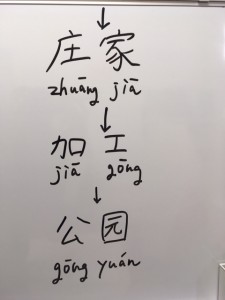 ↓
庄家
zhuāng jiā
↓
加工
jiā gōng
↓
公园
gōng yuán